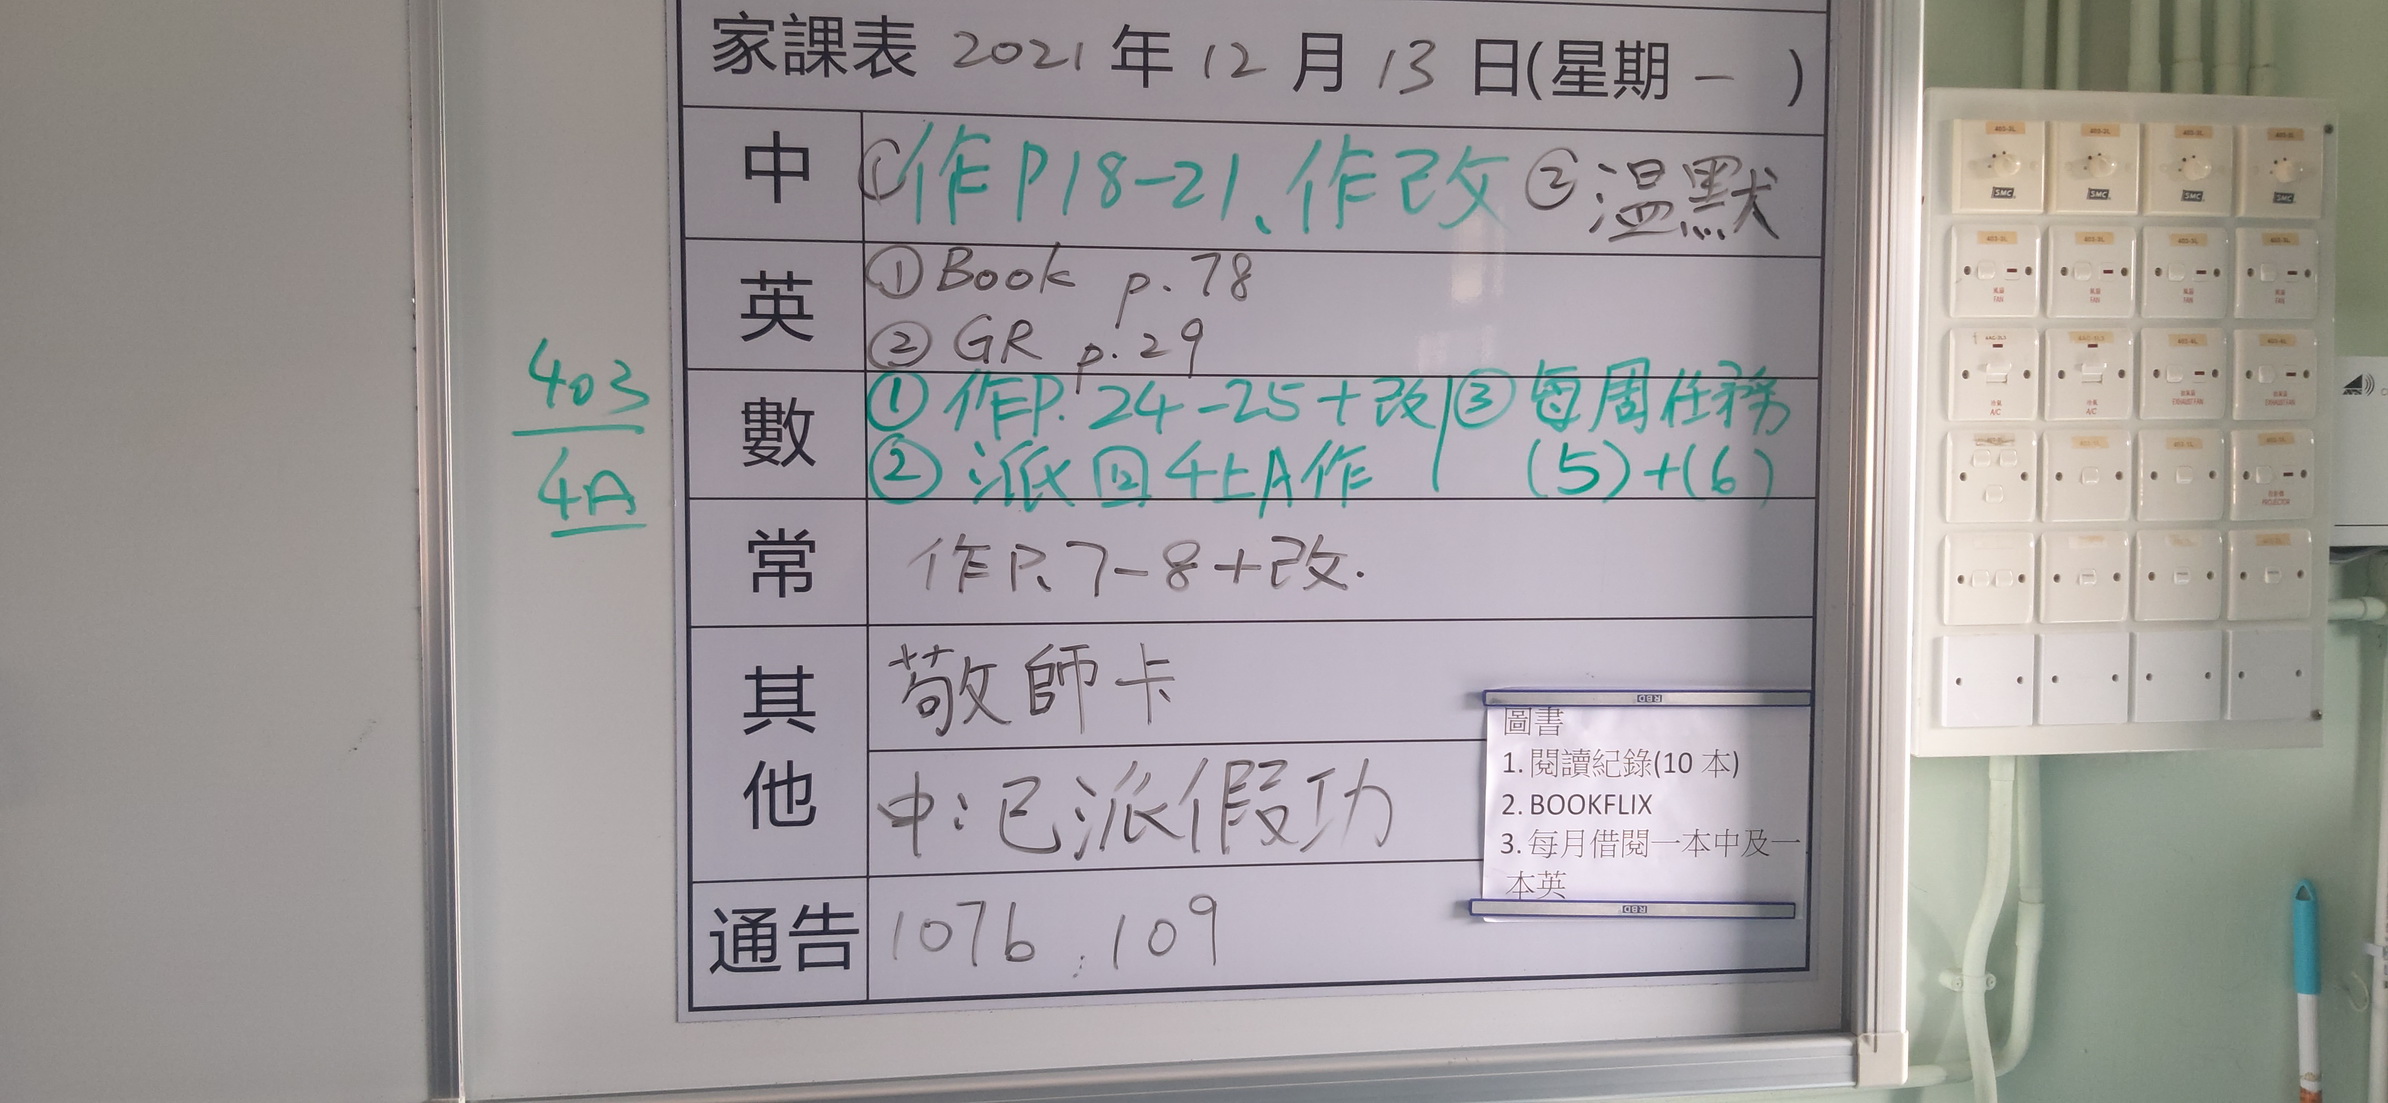 家課表 2021 年 12 月 13 日(星期 一 )
中 ①作P18-21、作改 ②溫默
英 ①Book p.78
②GR p.29
數 ①作P.24-25+改 ③每周任務
②派回4上A作 (5)+(6)
常 作P.7-8+改.
其他 敬師卡
中:已派假功
通告 107b,109
403
4A
圖書
1. 閱讀紀錄(10 本)
2. BOOKFLIX
3. 每月借閱一本中及一
本英
SMC SMC SMC SMC
風扇 風扇 風扇 風扇
FAN FAN FAN FAN
A/C A/C EXHAUST FAN EXHAUST FAN
PROJECTOR